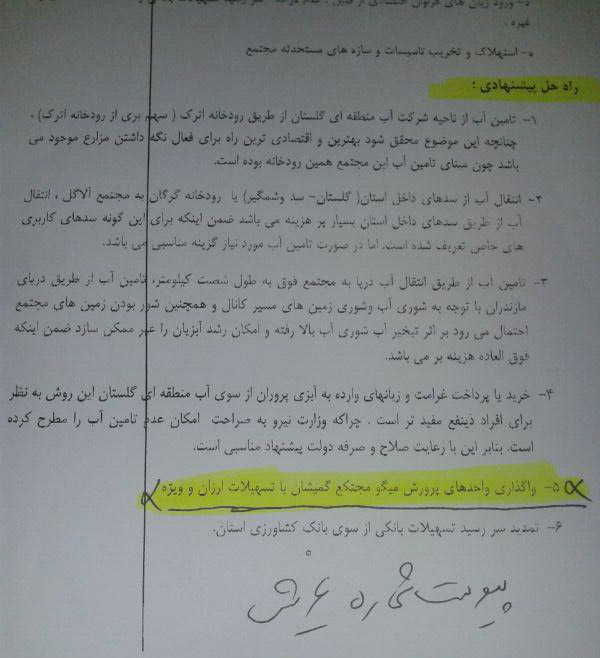 د- ورود زیان های فراوان اقتصادی از قبیل : عدم درآمد - سر رسید تسهیلات بانکی و
غیره .
ه- استهلاک و تخریب تاسیسات و سازه های مستحدثه مجتمع
راه حل پیشنهادی :
۱- تامین آب از ناحیه شرکت آب منطقه ای گلستان از طریق رودخانه اترک ( سهم بری از رودخانه اترک) ،
چنانچه این موضوع محقق شود بهترین و اقتصادی ترین راه برای فعال نگه داشتن مزارع موجود می
باشد چون مبنای تامین آب این مجتمع همین رودخانه بوده است.
۲- انتقال آب از سدهای داخل استان( گلستان- سد وشمگیر) یا رودخانه گرگان به مجتمع آلاگل ، انتقال
آب از طریق سدهای داخل استان بسیار پر هزینه می باشد ضمن اینکه برای این گونه سدهای کاربری
های خاص تعریف شده است. اما در صورت تامین آب مورد نیاز گزینه مناسبی می باشد.
۳- تامین آب از طریق انتقال آب دریا به مجتمع فوق به طول شصت کیلومتر، تامین آب از طریق دریای
مازندران با توجه به شوری آب وشوری زمین های مسیر کانال و همچنین شور بودن زمین های مجتمع
احتمال می رود بر اثر تبخیر آب شوری آب بالا رفته و امکان رشد آبزیان را غیر ممکن سازد ضمن اینکه
فوق العاده هزینه بر می باشد.
۴- خرید یا پرداخت غرامت و زیانهای وارده به آبزی پروران از سوی آب منطقه ای گلستان این روش به نظر
برای افراد ذینفع مفید تر است . چراکه وزارت نیرو به صراحت امکان عدم تامین آب را مطرح کرده
است. بنابر این با رعایت صلاح و صرفه دولت پیشنهاد مناسبی است.
۵- واگذاری واحدهای پرورش میگو مجتکع گمیشان با تسهیلات ارزان و ویژه
۶- تمدید سر رسید تسهیلات بانکی از سوی بانک کشاورزی استان.
پیوست شماره